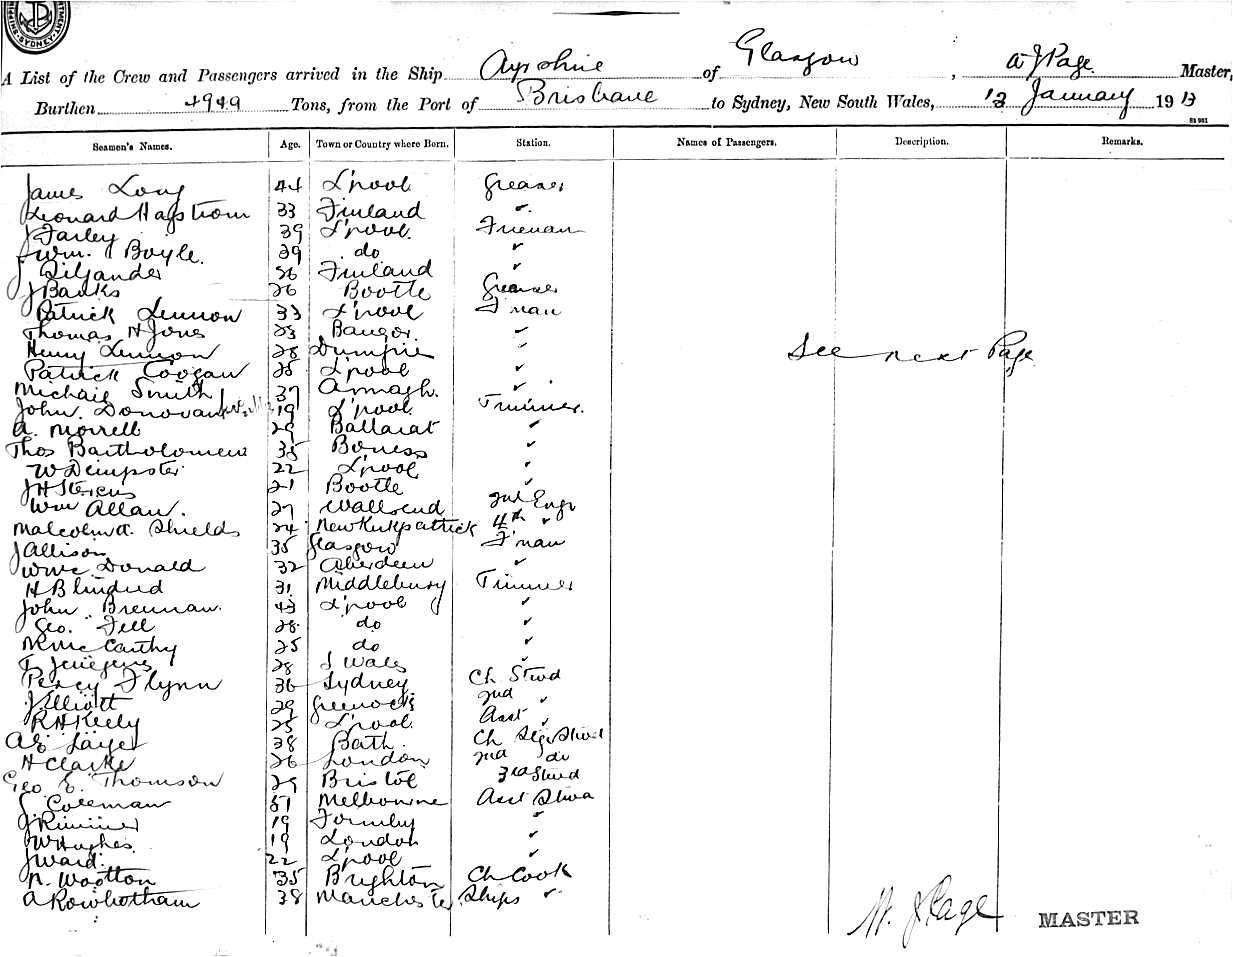 SYDNEY
A List of the Crew and Passengers arrived in the Ship Ayrshire of Glasgow, A J Page Master,
Burthen 4949 Tons, from the Port of Brisbane to Sydney, New South Wales, 13 January 1913
Seamen's Names. Age. Town or Country where Born. Station. Names of Passengers. Description. Remarks.
James Long 44 L'pool Greaser
Leonard Hagstrom 33 Finland ✓
J Farley 39 L'pool. Fireman
Wm. Boyle. 39 do ✓
J Giljander 56 Finland ✓
J Banks 26 Bootle Greaser
Patrick Lennon 33 L'pool F'man
Thomas H Jones 23 Bangor. ✓
Henry Lennon 28 Dumfries ✓ See next Page
Patrick Coogan 25 L'pool ✓
Michael Smith 37 Armagh. ✓
John Donovan 19 L'pool Trimmer.
A. Morrell 29 Ballarat ✓
Thos Bartholomew 35 Boness ✓
W Dempster 22 L'pool ✓
J H Stevens 21 Bootle ✓
Wm Allan. 27 Wallsend 2nd Engr
Malcolm A. Shields 24 New Kirkpatrick 4th ✓
J Allison 35 Glasgow F'man
W Mc Donald 32 Aberdeen ✓
H Blindud 31 Middlebury Trimmer
John Brennan. 43 L'pool ✓
Geo. Fell 28 do ✓
M McCarthy 25 do ✓
T 28 S Wales ✓
Percy Flynn 36 Sydney Ch Stwd
J Elliott 29 Greenock 2nd ✓
R H Keely 25 L'pool. Asst ✓
38 Bath. Ch
H Clarke 26 London 2nd do
Geo E. Thomson 29 Bristol 3rd Stwd
J Coleman 51 Melbourne Asst Stwd
J Rimmer 19 Formby ✓
J W Hughes. 19 London ✓
J Ward. 22 L'pool ✓
N. Wootton 35 Brighton Ch Cook
A Rowbotham 38 Manchester Ships ✓
J Page MASTER